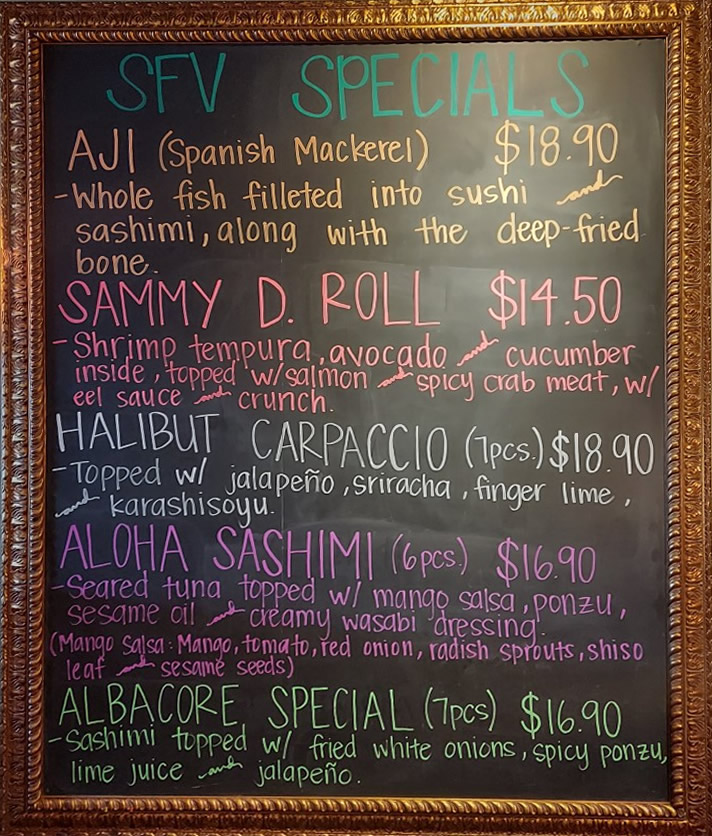 SFV SPECIALS
AJI (Spanish Mackerel) $18.90
-Whole fish filleted into sushi and
sashimi, along with the deep-fried
bone.
SAMMY D. ROLL $14.50
-Shrimp tempura, avocado and cucumber
inside, topped w/salmon and spicy crab meat, w/
eel sauce and crunch.
HALIBUT CARPACCIO (7pcs.) $18.90
-Topped w/ jalapeño, sriracha, finger lime,
and karashisoyu.
ALOHA SASHIMI (6pcs.) $16.90
-Seared tuna topped w/ mango salsa, ponzu,
sesame oil and creamy wasabi dressing.
(Mango Salsa: Mango, tomato, red onion, radish sprouts, shiso
leaf and sesame seeds)
ALBACORE SPECIAL (7pcs) $16.90
-Sashimi topped w/ fried white onions, spicy ponzu,
lime juice and jalapeño.